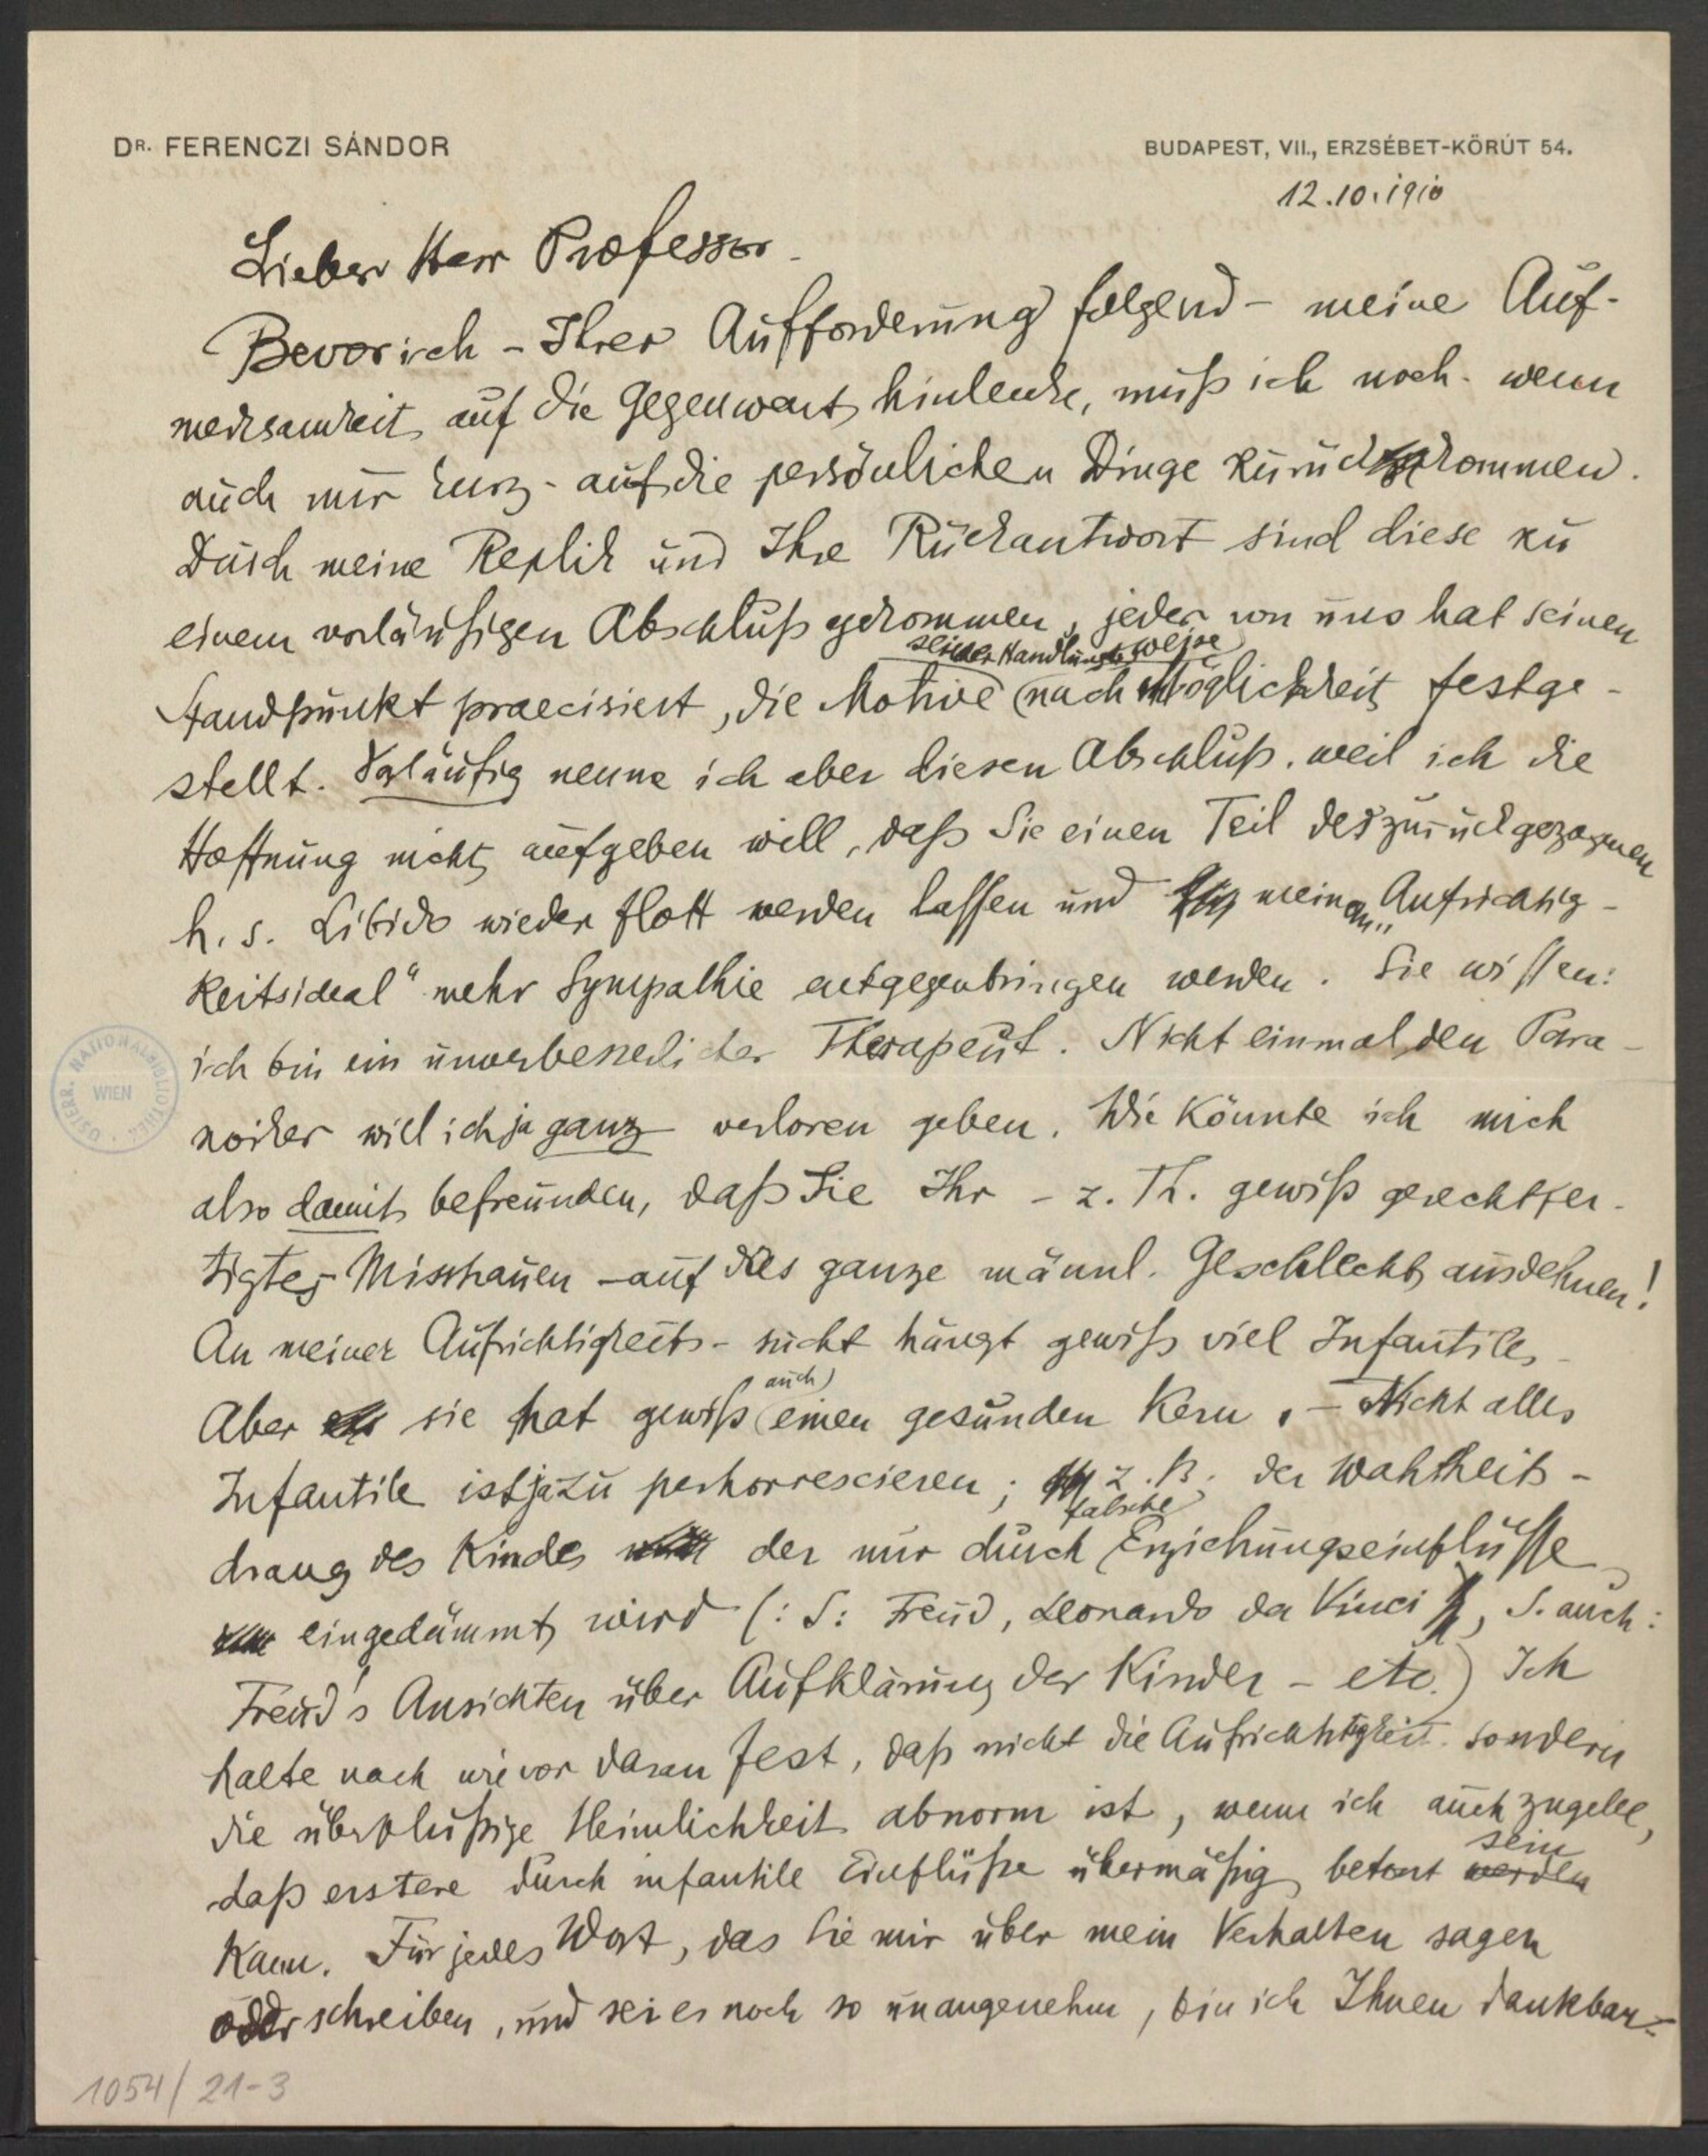 DR. FERENCZI SÁNDOR
BUDAPEST, VII., ERZSÉBET-KÖRÚT 54.
12.10.1910
Lieber Herr Professor.
Bevor ich - Ihrer Aufforderung folgend - meine Auf-
merksamkeit auf die Gegenwart hinlenke, muß ich noch - wenn
auch nur kurz - auf die persönlichen Dinge zurückkommen.
Durch meine Replik und Ihre Rückantwort sind diese zu
einem vorläufigen Abschluß gekommen, jeder von uns hat seinen
seiner Handlungsweise
Standpunkt praecisiert, die Motive nach Möglichkeit festge-
stellt. Vorläufig nenne ich aber diesen Abschluß, weil ich die
Hoffnung nicht aufgeben will, daß Sie einen Teil der zurückgezogenen
h. s. Libido wieder flott werden lassen und meinem „Aufrichtig-
keitsideal“ mehr Sympathie entgegenbringen werden. Sie wissen:
ich bin ein unverbesserlicher Therapeut. Nicht einmal den Para-
noiker will ich ja ganz verloren geben. Wie könnte ich mich
also damit befreunden, daß Sie Ihr - z. Th. gewiß gerechtfer-
tigtes Misstrauen - auf das ganze männl. Geschlecht ausdehnen!
An meiner Aufrichtigkeits-sucht hängt gewiß viel Infantiles -
auch
Aber sie hat gewiß einen gesunden Kern. - Nicht alles
Infantile ist ja zu perhorrescieren; z. B. der Wahrheits-
falsche
drang des Kindes der nur durch Erziehungseinflüsse
eingedämmt wird (: S: Freud, Leonardo da Vinci, S. auch:
Freud's Ansichten über Aufklärung der Kinder - etc.) Ich
halte nach wie vor daran fest, daß nicht die Aufrichtigkeit sondern
die überflüßige Heimlichkeit abnorm ist, wenn ich auch zugebe,
sein
daß erstere durch infantile Einflüße übermäßig betont werden
kann. Für jedes Wort, das Sie mir über mein Verhalten sagen
oder schreiben, und sei es noch so unangenehm, bin ich Ihnen dankbar -
ÖSTERR. NATIONALBIBLIOTHEK
WIEN
1054/21-3